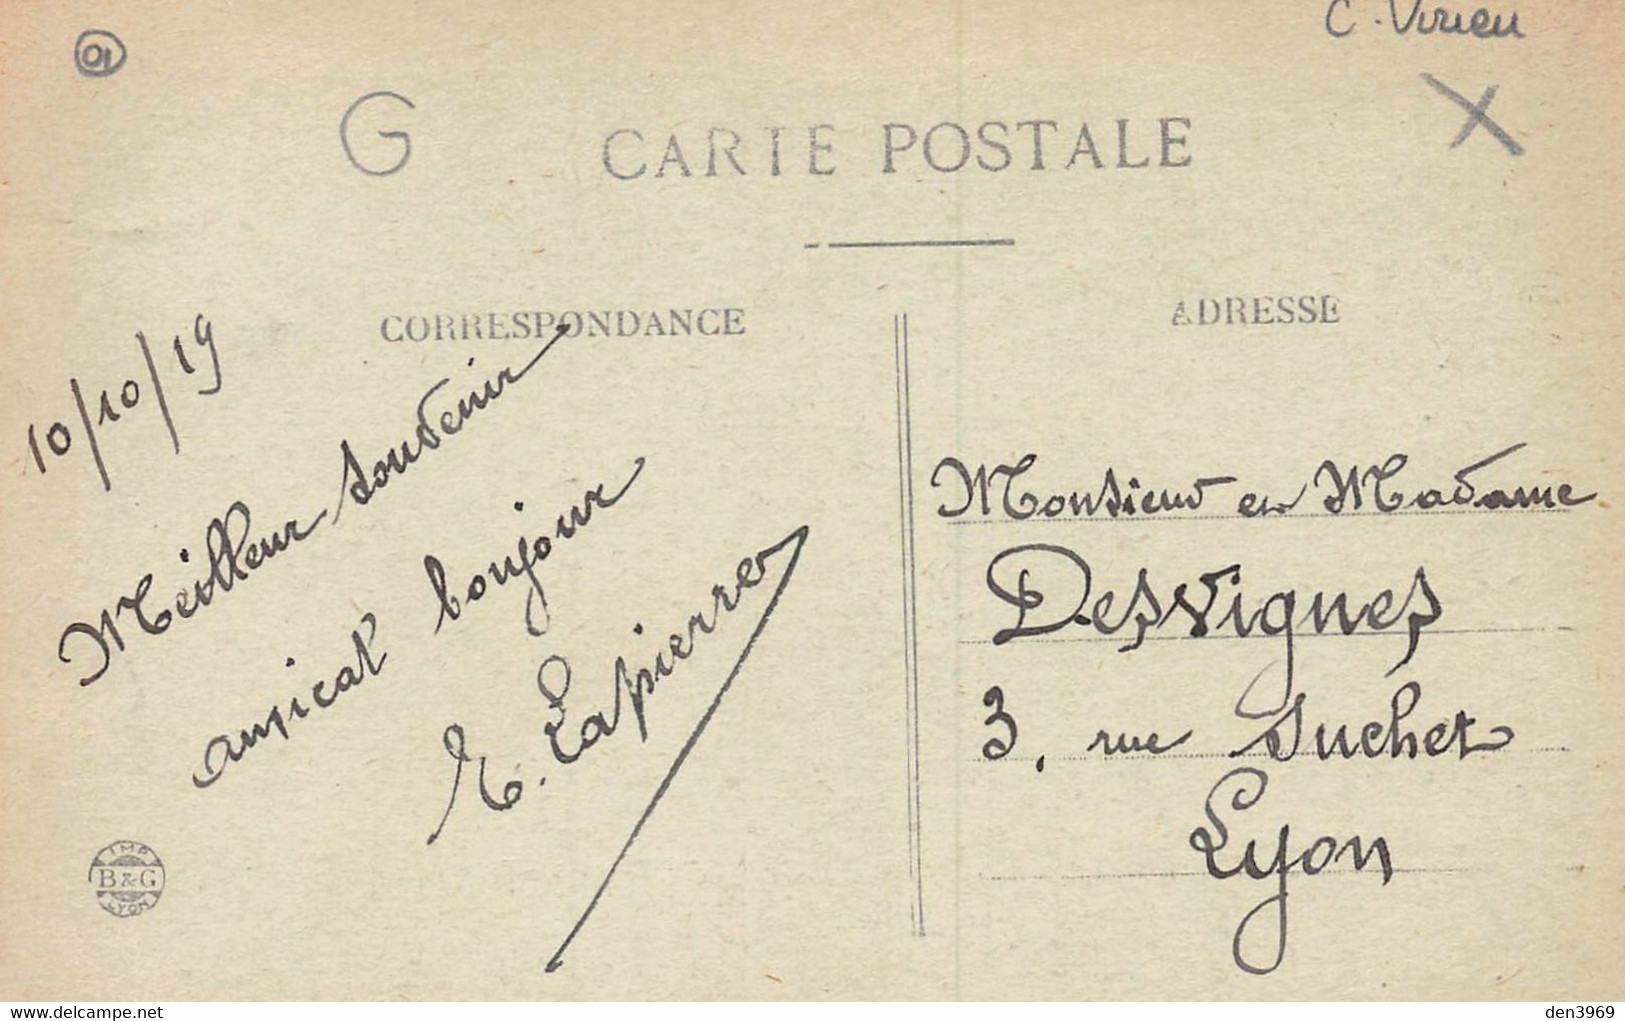 01
C. Virieu
G
X
CARTE POSTALE
CORRESPONDANCE
ADRESSE
10/10/19
Meilleur souvenir
amical bonjour
E. Lapierre
Monsieur et Madame
Desvignes
3, rue Suchet
Lyon
IMP.
B & G
LYON
delcampe.net
den3969